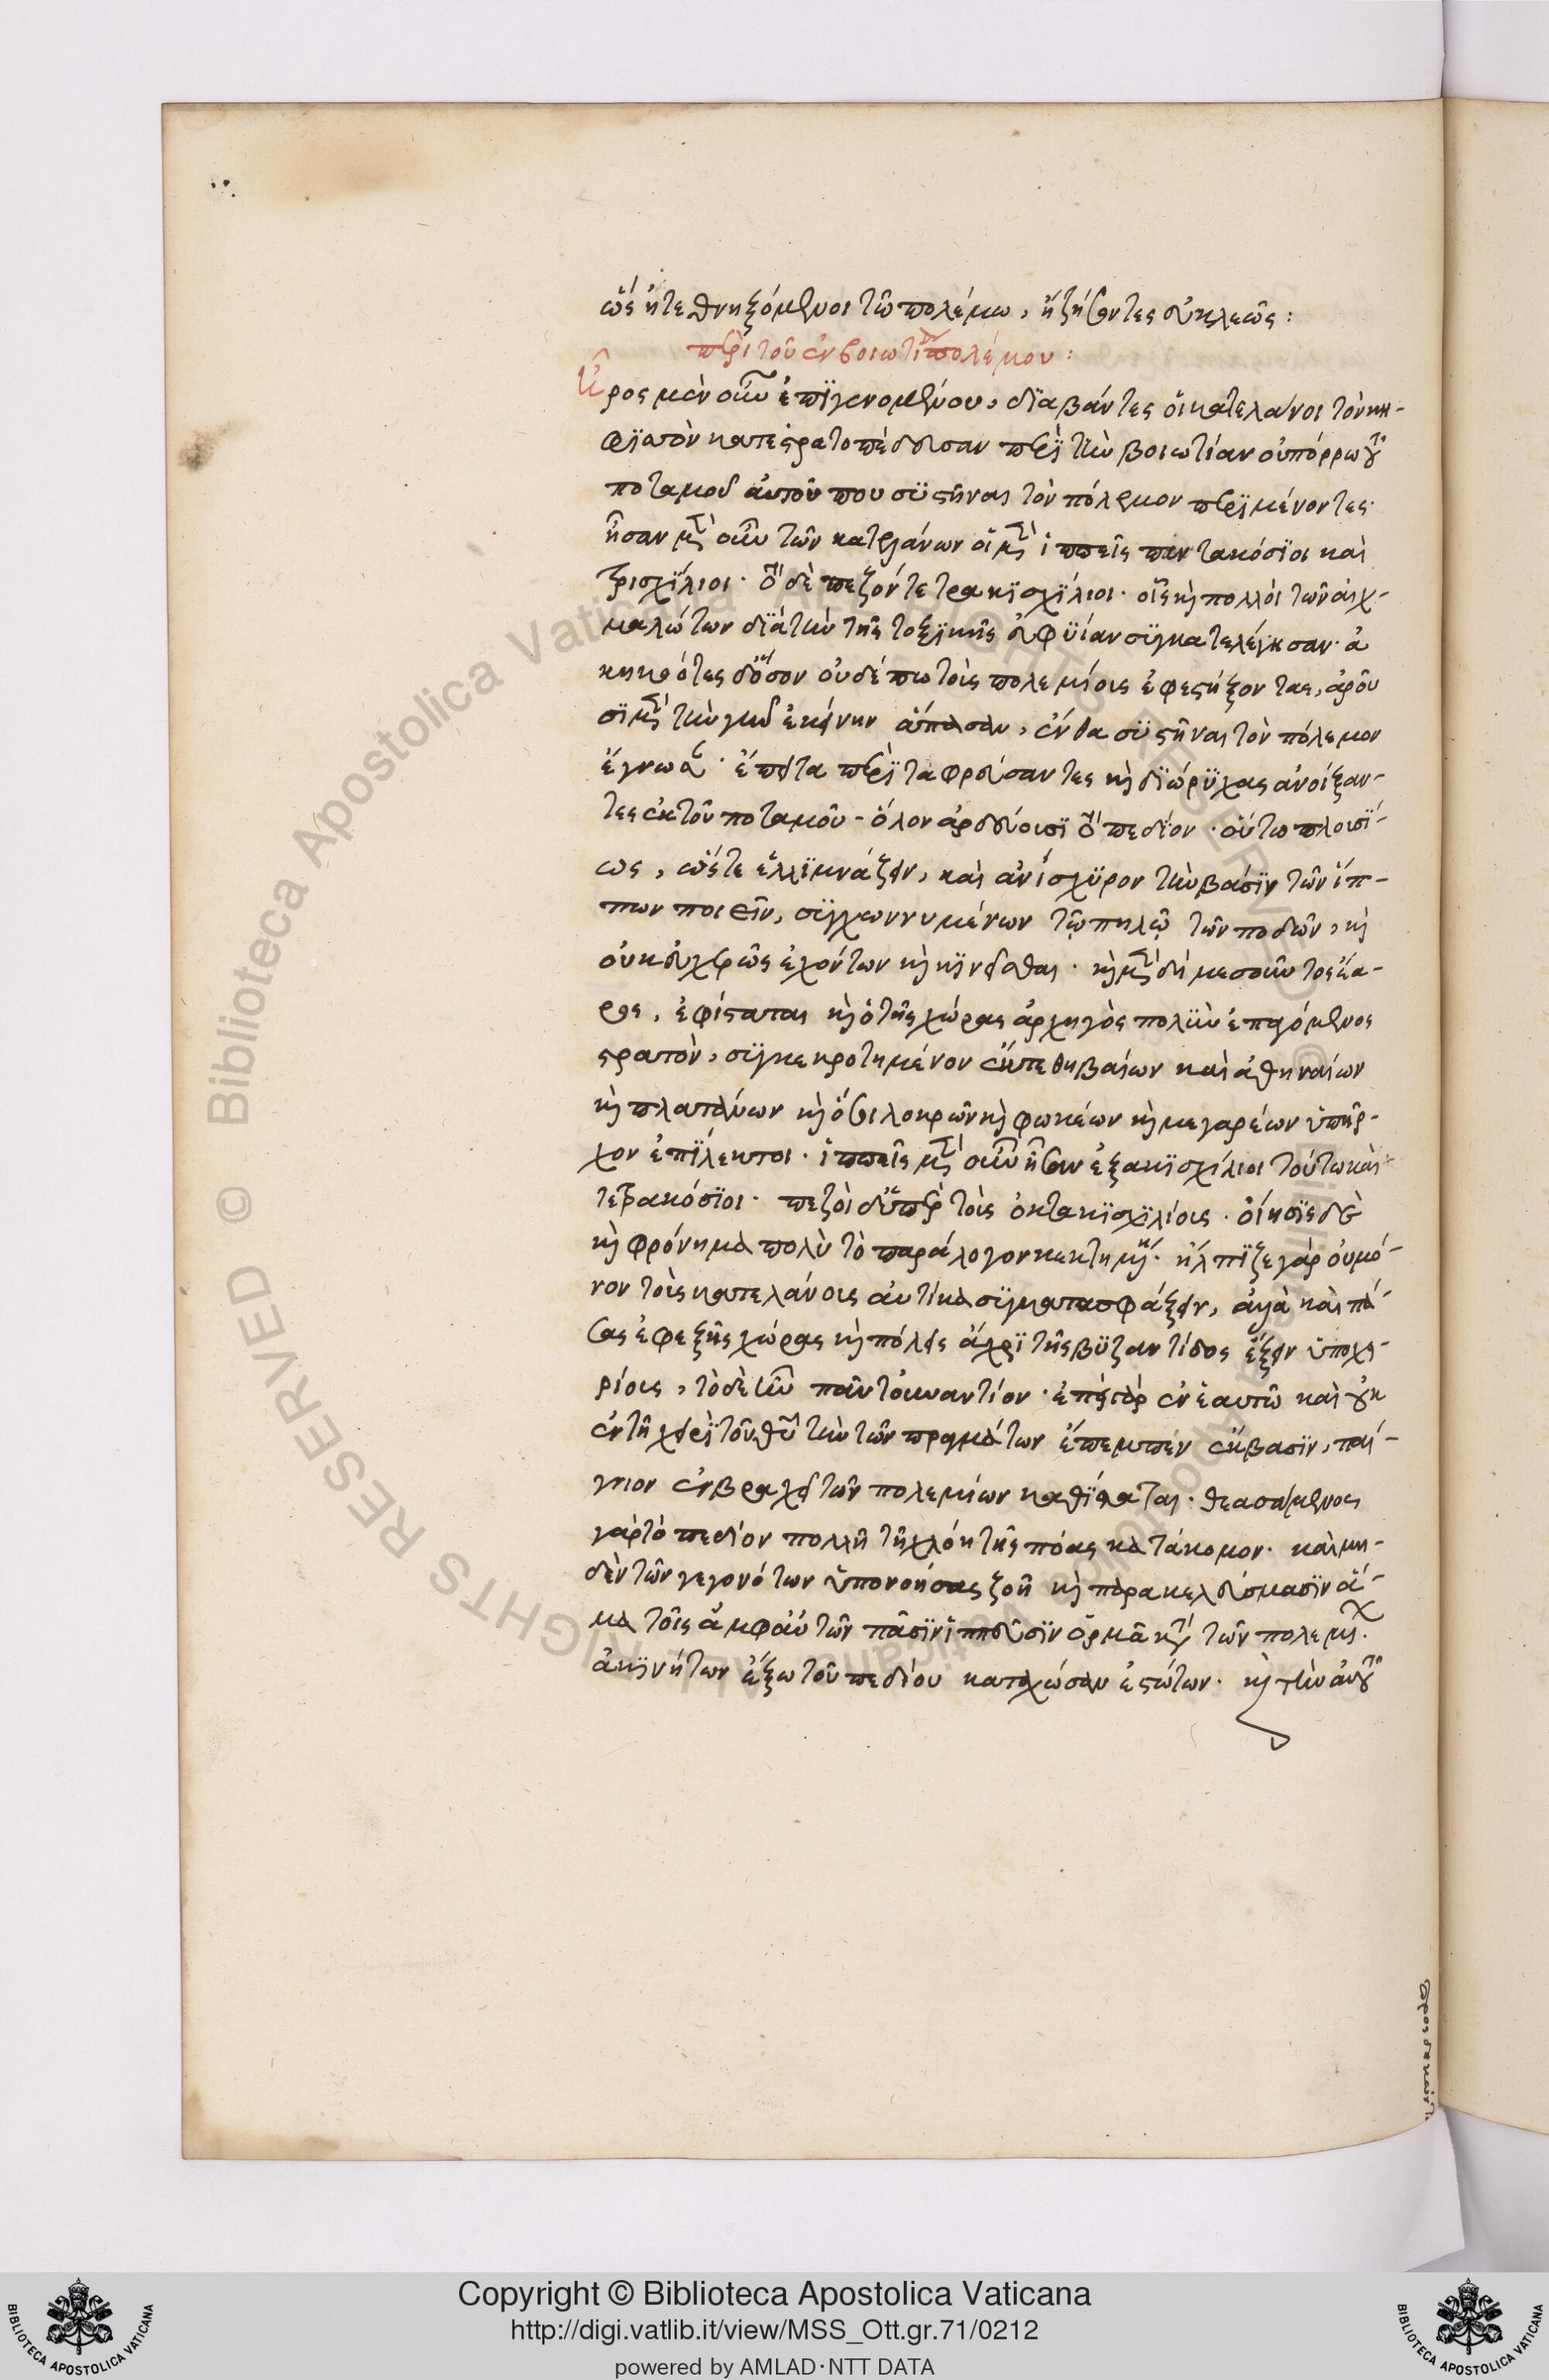 ὡς ἢ τεθνηξόμενοι τῶ πολέμω, ἢ ζήσοντες εὐκλεῶς:
περὶ τοῦ ἐν βοιωτία πολέμου:
ἦρος μὲν οὖν ἐπϊγενομένου, δϊαβάντες οἱ κατελάνοι τὸν κη-
φϊσὸν κατεστρατοπέδευσαν περὶ τὴν βοιωτίαν οὐ πόρρω τοῦ
ποταμοῦ αὐτοῦ που συστῆναι τὸν πόλεμον περϊμένοντες·
ἦσαν μέντοι οὖν τῶν κατελάνων οἱ μὲν ἱππεῖς πεντακόσϊοι καὶ
τρισχϊλιοι· τὸ δὲ πεζὸν τετρακϊσχϊλιοι· οἷς καὶ πολλοὶ τῶν αἰχ-
μαλώτων δϊὰ τὴν τῆς τοξϊκῆς εὐφϋίαν συγκατελέγησαν· ἀ
κηκοότες δ' ὅσον οὐδέπω τοὺς πολεμίους ἐφεστήξοντας, ἀροῦ
σϊ μὲν τὴν γῆν ἐκείνην ἅπασαν, ἔνθα συστῆναι τὸν πόλεμον
ἔγνωσαν· ἔπειτα περϊταφρεύσαντες καὶ δϊώρϋχας ἀνοίξαν-
τες ἐκ τοῦ ποταμοῦ- ὅλον ἀρδεύουσϊ τὸ πεδίον· οὕτω πλουσί-
ως, ὥστε ἐλλϊμνάζειν, καὶ ἀνίσχϋρον τὴν βάσϊν τῶν ἵπ-
πων ποιεῖν, συγχωννυμένων τῷ πηλῷ τῶν ποδῶν, καὶ
οὐκ εὐχερῶς ἐχόντων καὶ κϊνεῖσθαι· καὶ μέντοι δὴ μεσοῦντος ἔα-
ρος, ἐφίσταται καὶ ὁ τῆς χώρας ἀρχηγὸς πολὺν ἐπαγόμενος
στρατὸν, συγκεκροτημένον ἔκ τε θηβαίων καὶ ἀθηναίων
καὶ πλαταιέων καὶ ὅσοι λοκρῶν καὶ φωκέων καὶ μεγαρέων ὑπῆρ-
χον ἐπϊλεκτοι· ἱππεῖς μὲν οὖν ἦσαν ἑξακϊσχίλιοι τούτω καὶ
τετρακόσϊοι· πεζοὶ δ' ὑπὲρ τοὺς ὀκτακϊσχϊλίους· οἴησϊς δὲ
καὶ φρόνημα πολὺ τὸ παράλογον κεκτημένη· ἤλπϊζε γὰρ οὐ μό-
νον τοὺς κατελάνους αὐτίκα συγκατασφάξειν, ἀλλὰ καὶ πά-
σας ἐφεξῆς χώρας καὶ πόλεις ἄχρϊ τῆς βϋζαντίδος ἕξειν ὑποχει-
ρίους, τὸ δὲ ἦν πᾶν τοὐναντίον· ἐπεὶ γὰρ ἐν ἑαυτῶ καὶ οὐκ
ἐν τῆ χειρϊ τοῦ θεοῦ τὴν τῶν πραγμάτων ἔπεμπεν ἔκβασϊν, παί-
γνιον ἐν βραχεῖ τῶν πολεμίων καθίσταται· θεασάμενος
γὰρ τὸ πεδίον πολλῆ τῆ χλόη τῆς πόας κατάκομον· καὶ μη-
δὲν τῶν γεγονότων ὑπονοήσας ζοῆ καὶ παρακελεύσμασϊν ἅ-
μα τοῖς ἀμφ' αὐτῶν πᾶσϊν ἱππεῦσϊν ὁρμᾶ κατὰ τῶν πολεμίων
ἀκϊνήτων ἔξω τοῦ πεδίου κατὰ χώραν ἑστώτων· καὶ τὴν αὐτοῦ